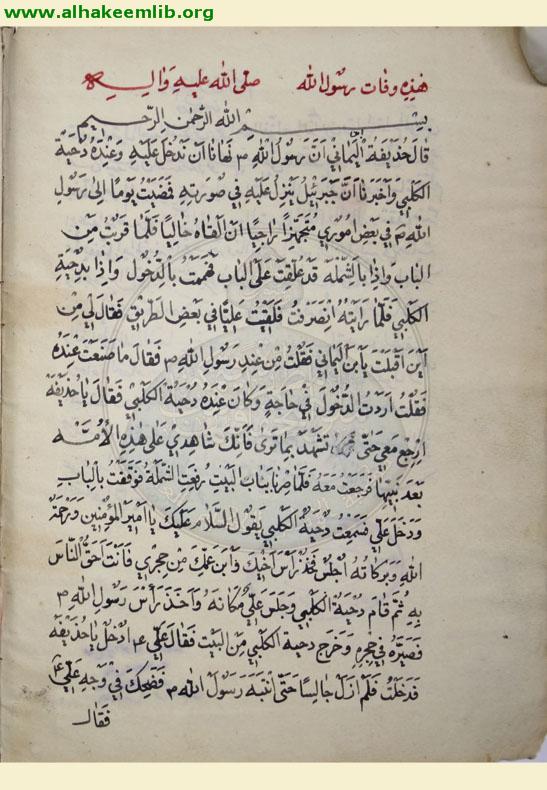 www.alhakeemlib.org
هذه وفات رسول الله صلى الله عليه واله
بسم الله الرحمن الرحيم
قال حذيفة اليماني ان رسول الله ص نهانا ان ندخل عليه وعنده دحية
الكلبي واخبرنا ان جبرئيل ينزل عليه في صورته فمضيت يوما الى رسول
الله ص في بعض اموري متجهزا راجيا ان القاه خاليا فلما قربت من
الباب واذا بالشملة قد علقت على الباب فهممت بالدخول واذا بدحية
الكلبي فلما رايته انصرفت فلقيت عليا في بعض الطريق فقال لي من
اين اقبلت يابن اليماني فقلت من عند رسول الله ص فقال ما صنعت عنده
فقلت اردت الدخول في حاجة وكان عنده دحية الكلبي فقال يا حذيفة
ارجع معي حتى تشهد بما ترى فانك شاهدي على هذه الامة
بعد نبيها فرجعت معه فلما صرنا بباب البيت رفعت الشملة فوقفت بالباب
ودخل علي فسمعت دحية الكلبي يقول السلام عليك يا امير المؤمنين ورحمة
الله وبركاته اجلس فخذ راس اخيك وابن عمك من حجري فانت احق الناس
به ثم قام دحية الكلبي وجلس علي مكانه واخذ راس رسول الله ص
فصيره في حجره وخرج دحية الكلبي من البيت فقال علي ع ادخل يا حذيفة
فدخلت فلم ازل جالسا حتى انتبه رسول الله ص فضحك في وجه علي ع
فقال